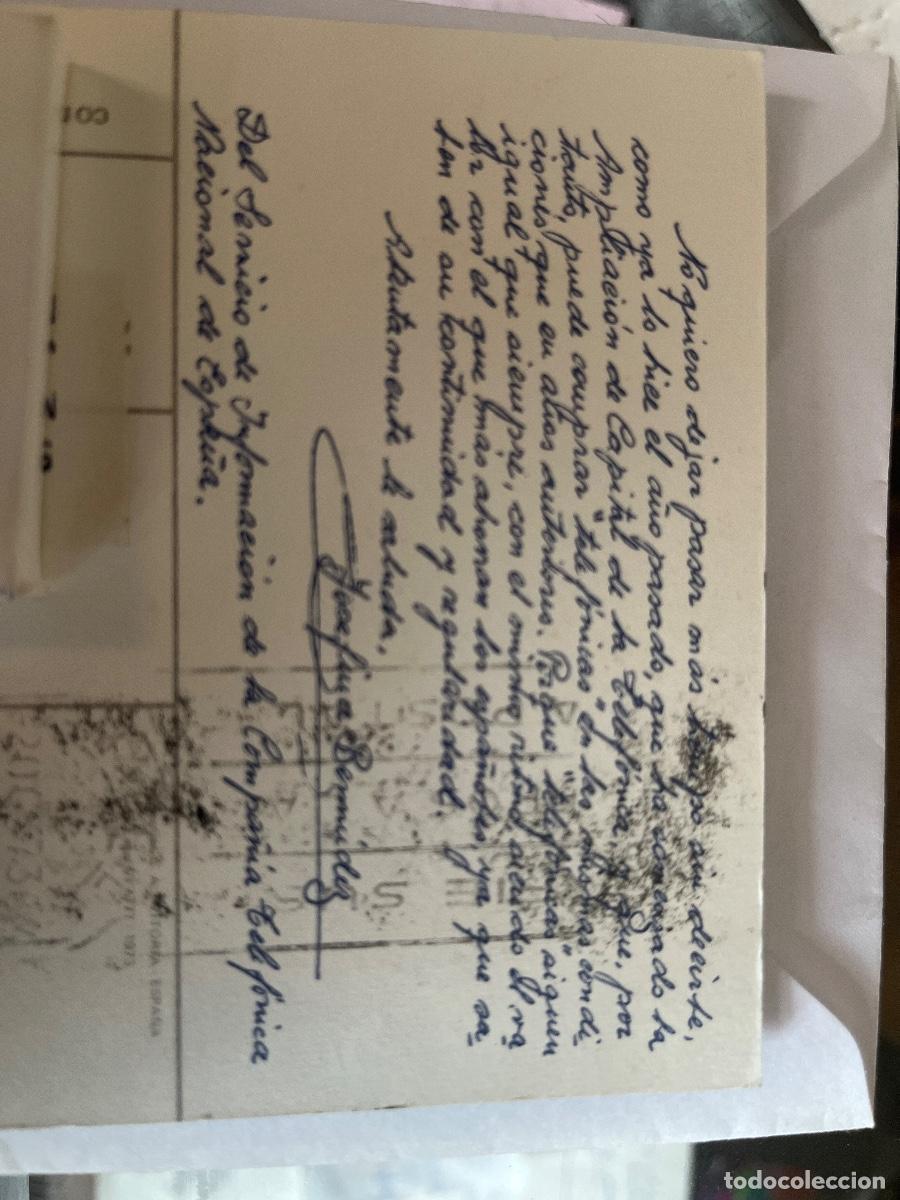 No quiero dejar pasar más tiempo sin decirte,
como ya lo hice el año pasado, que ha comenzado la
Ampliación de Capital de la Telefónica y que, por
tanto, puede comprar "telefónicas" en las mismas condi
ciones que en años anteriores. Porque "telefónicas" siguen
igual que siempre, con el mismo ritmo, siendo el va
lor con el que más ahorran los españoles, ya que sa
ben de su continuidad y regularidad.
Atentamente le saluda,
Josefina Bermúdez
Del Servicio de Información de la Compañía Telefónica
Nacional de España.
ESPAÑA
1973
todocoleccion